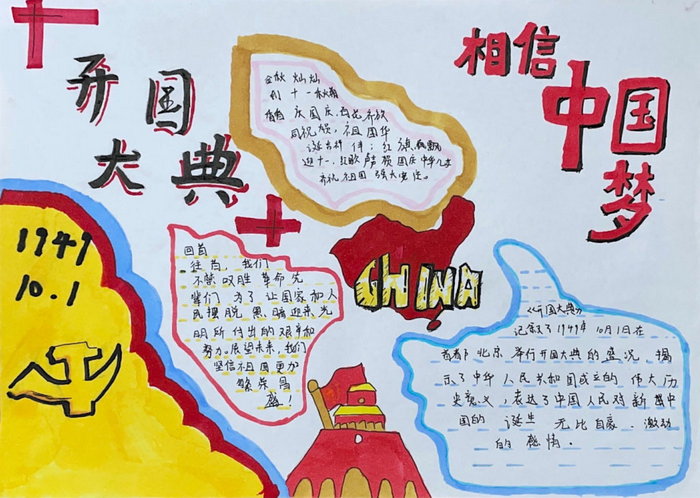 开国
大典
相信
中国
梦
金秋 灿灿
庆国庆,百花齐放
同祝贺,祖国华
诞吉祥伴;红旗飘飘
迎十一,红歌声声颂国庆
齐祝祖国强大富强。
1949
10.1
回首
往昔,我们
不禁叹胜革命先
辈们为了让国家和人
民摆脱黑暗迎来光
明所付出的艰辛和
努力。展望未来,我们
坚信祖国更加
繁荣昌
盛!
CHINA
《开国大典》
记叙了1949年10月1日在
首都北京举行开国大典的盛况,揭
示了中华人民共和国成立的伟大历
史意义,表达了中国人民对新中
国的诞生无比自豪、激动
的感情。